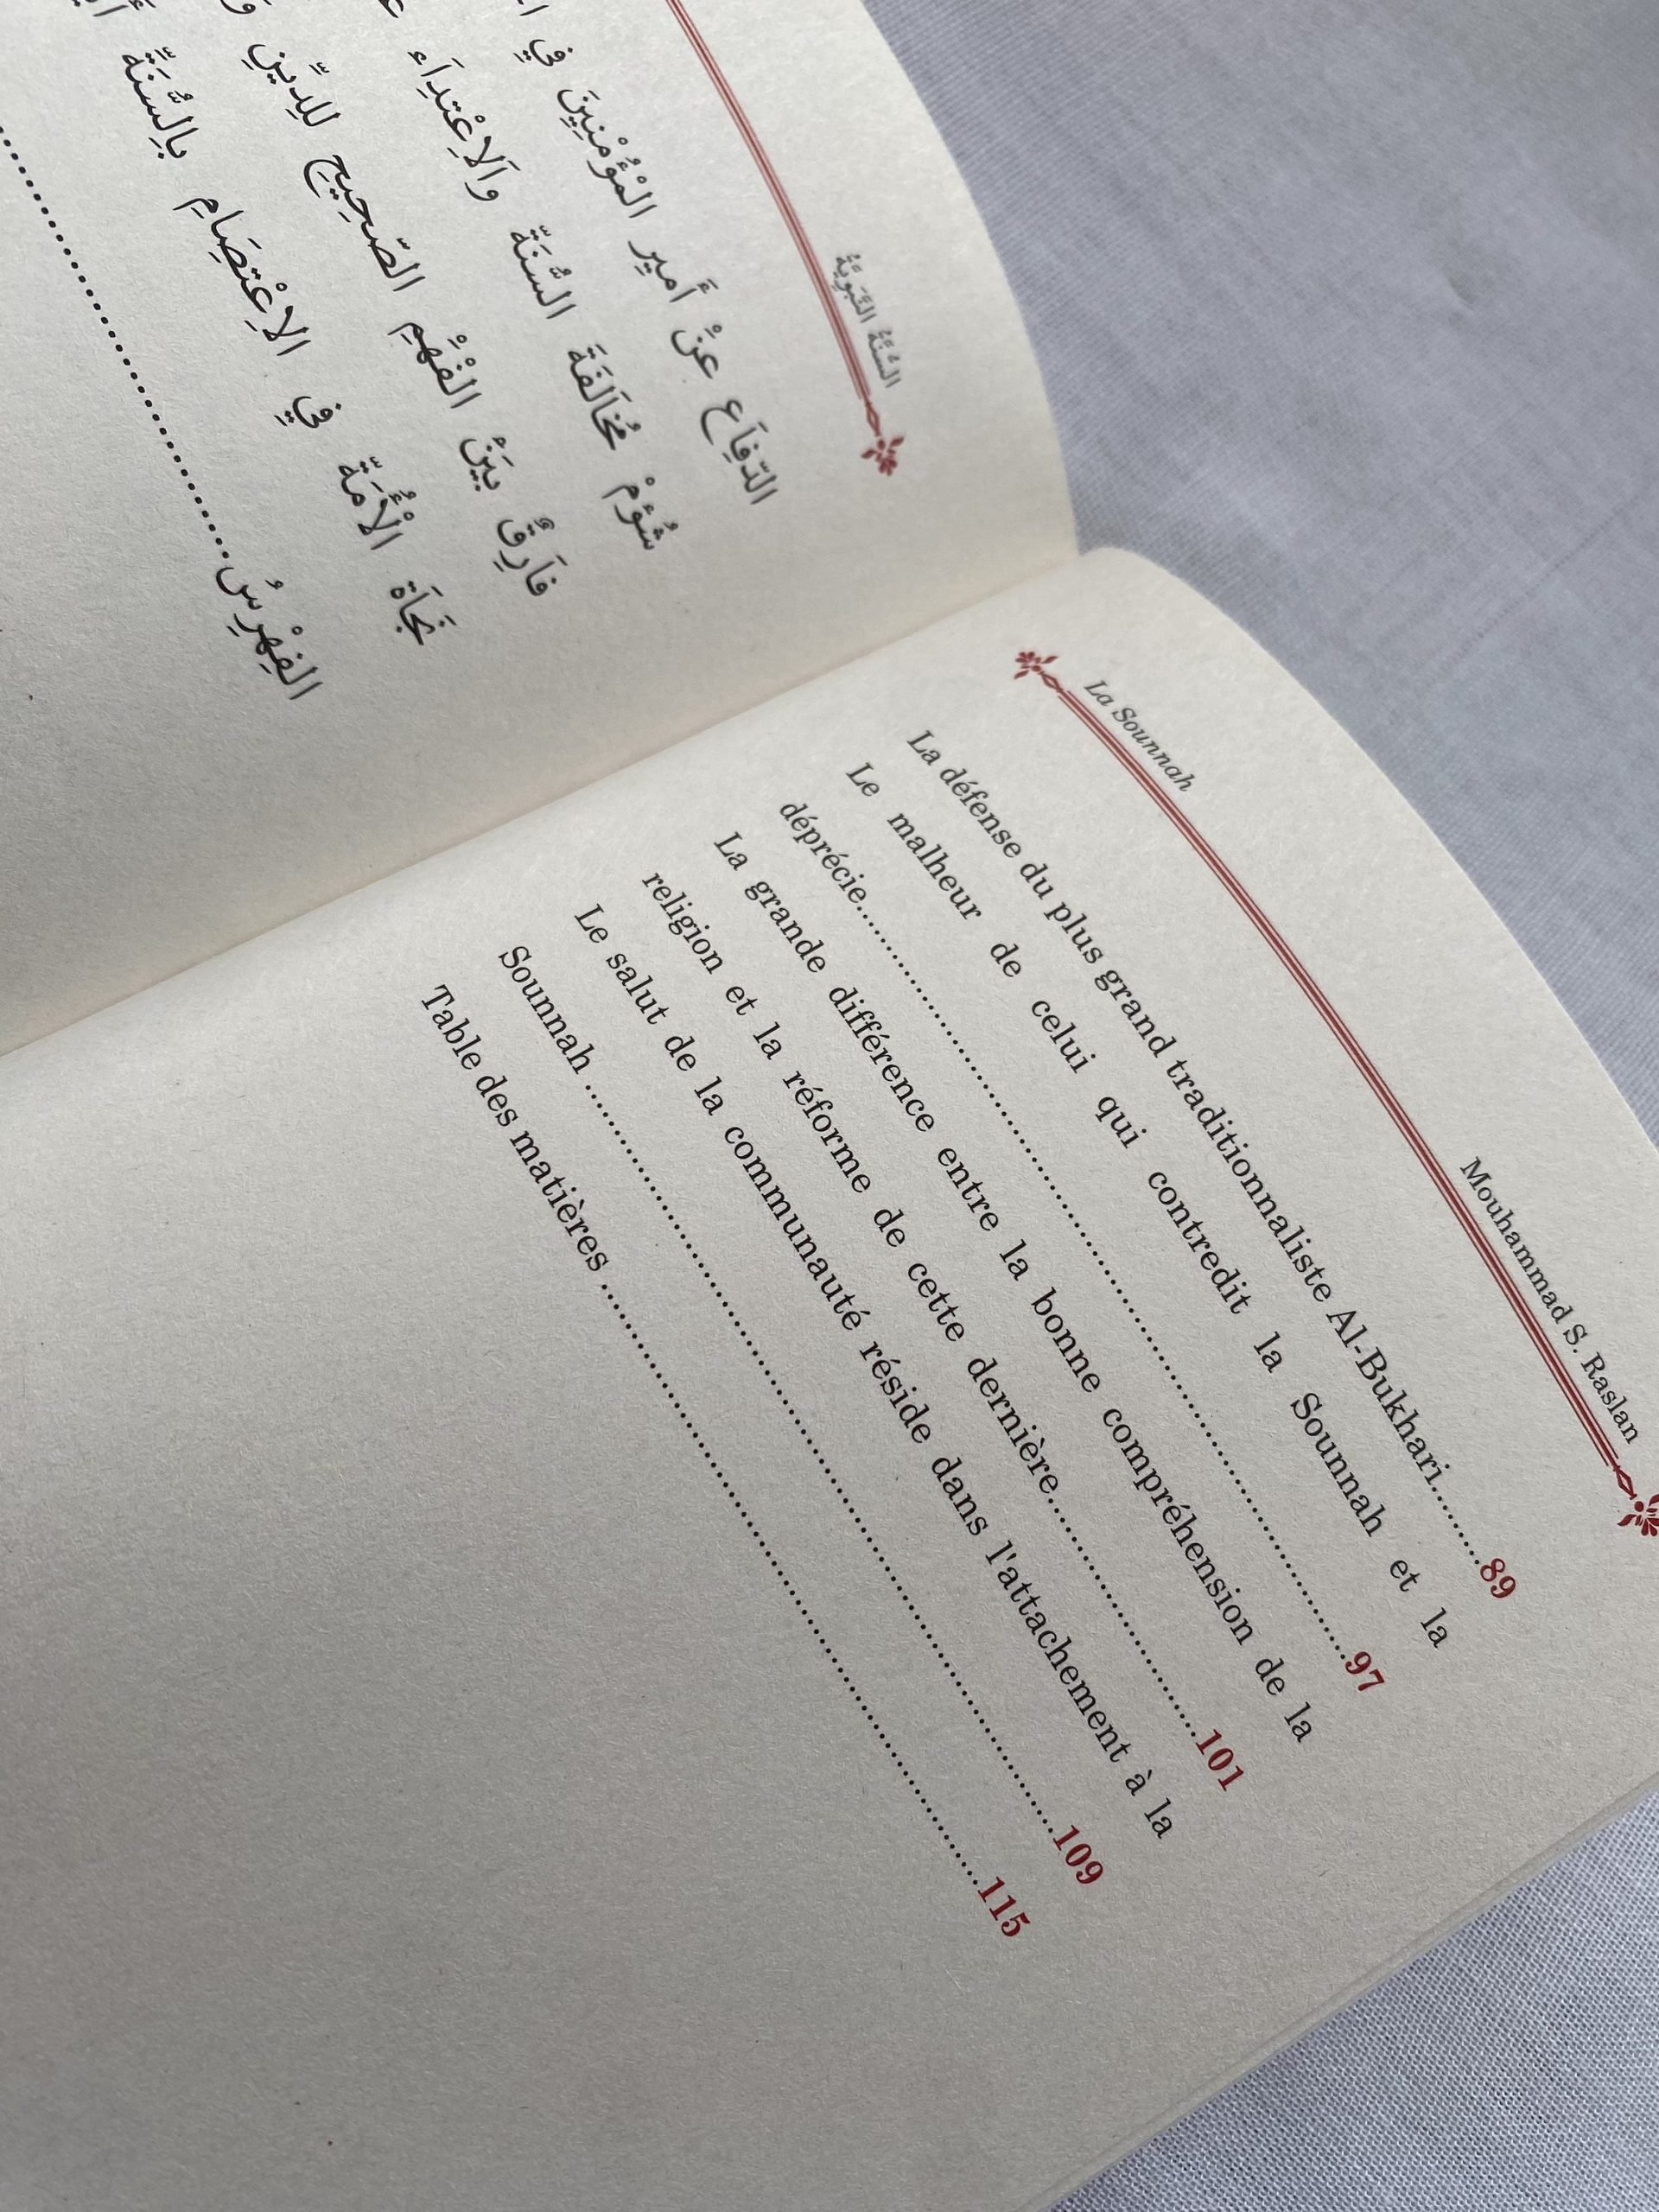 السُّنَّةُ النَّبَوِيَّةُ
الدِّفَاعِ عَنْ أَمِيرِ الْمُؤْمِنِينَ فِي
شُؤْمُ مُخَالَفَةِ السُّنَّةِ وَالِاعْتِدَاءِ
فَارِقٌ بَيْنَ الْفَهْمِ الصَّحِيحِ لِلدِّينِ
نَجَاةُ الْأُمَّةِ فِي الِاعْتِصَامِ بِالسُّنَّةِ
الفِهْرِسُ
La Sounnah Mouhammad S. Raslan
La défense du plus grand traditionnaliste Al-Bukhari.......89
Le malheur de celui qui contredit la Sounnah et la
déprécie..............................................................97
La grande différence entre la bonne compréhension de la
religion et la réforme de cette dernière.....................101
Le salut de la communauté réside dans l'attachement à la
Sounnah ..........................................................109
Table des matières ................................................115